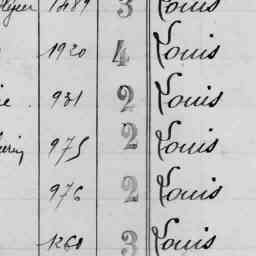 1489 3 Louis
1920 4 Louis
931 2 Louis
975 2 Louis
976 2 Louis
1260 3 Louis